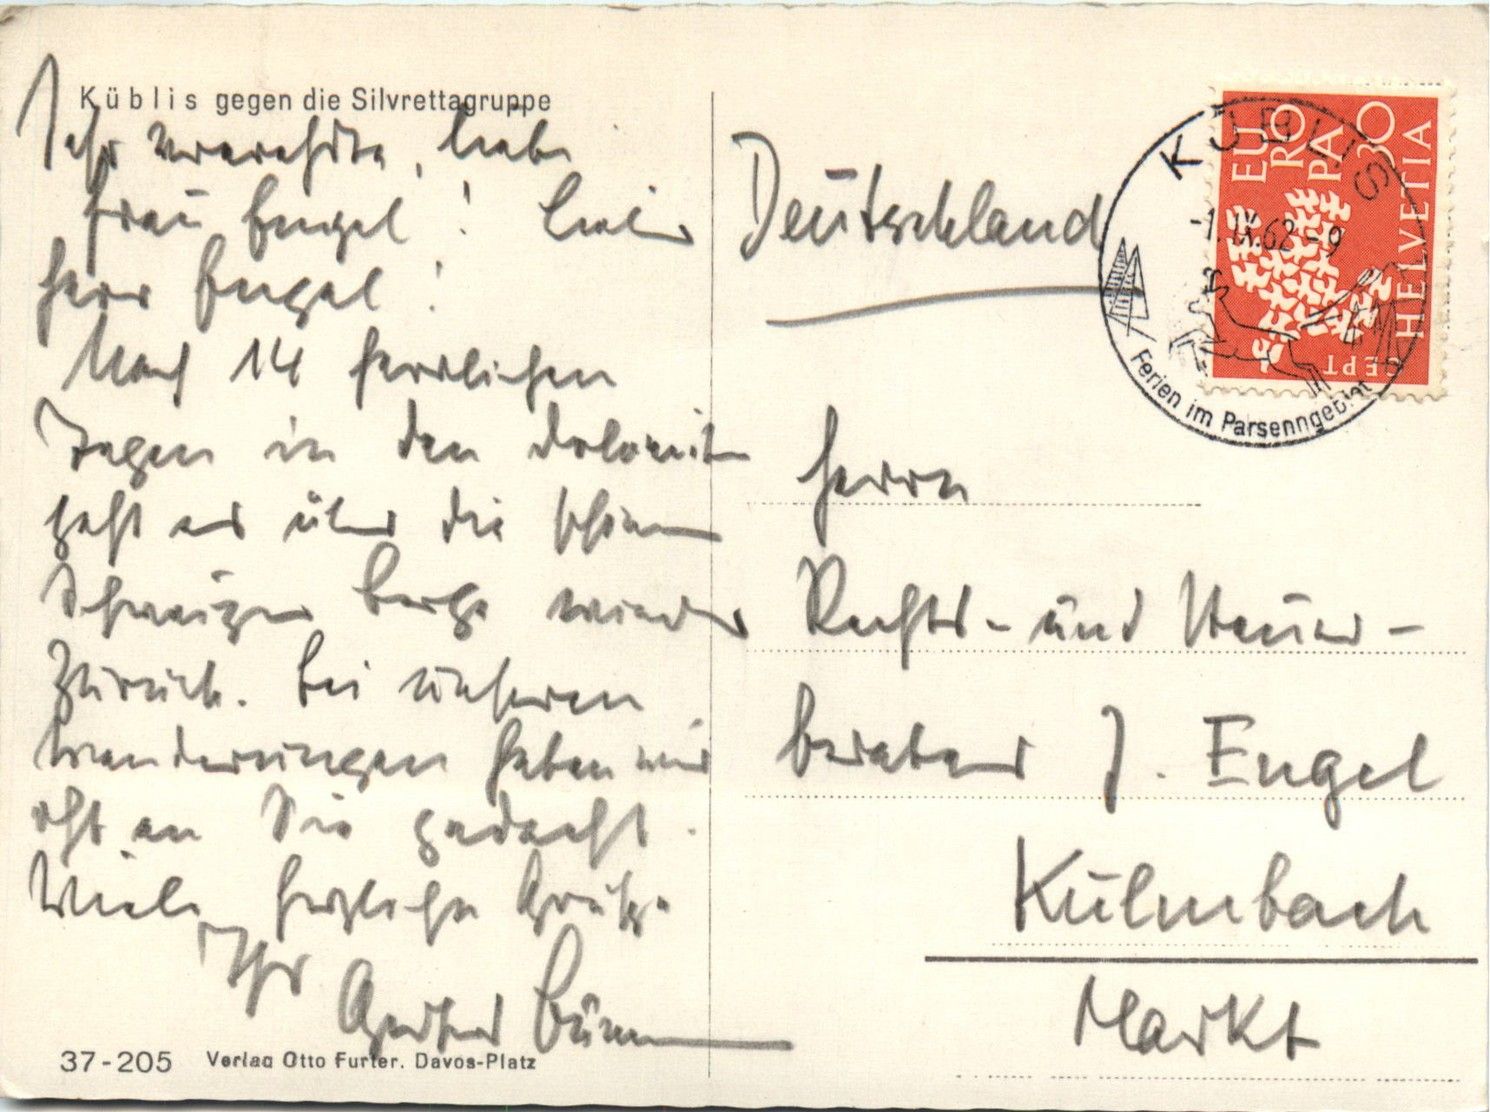 Küblis gegen die Silvrettagruppe
Sehr verehrte, liebe
Frau Engel! Lieber
Herr Engel!
Nach 14 herrlichen
Tagen in den Dolomiten
geht es über die schönen
Schweizer Berge wieder
zurück. Bei unseren
Wanderungen haben wir
oft an Sie gedacht.
Viele herzliche Grüße
Ihr
37-205 Verlag Otto Furter. Davos-Platz
Deutschland
KÜBLIS
-1.IX.62-9
Ferien im Parsenngebiet
EUROPA 30
HELVETIA
CEPT
Herrn
Rechts- und Steuer-
berater J. Engel
Kulmbach
Markt